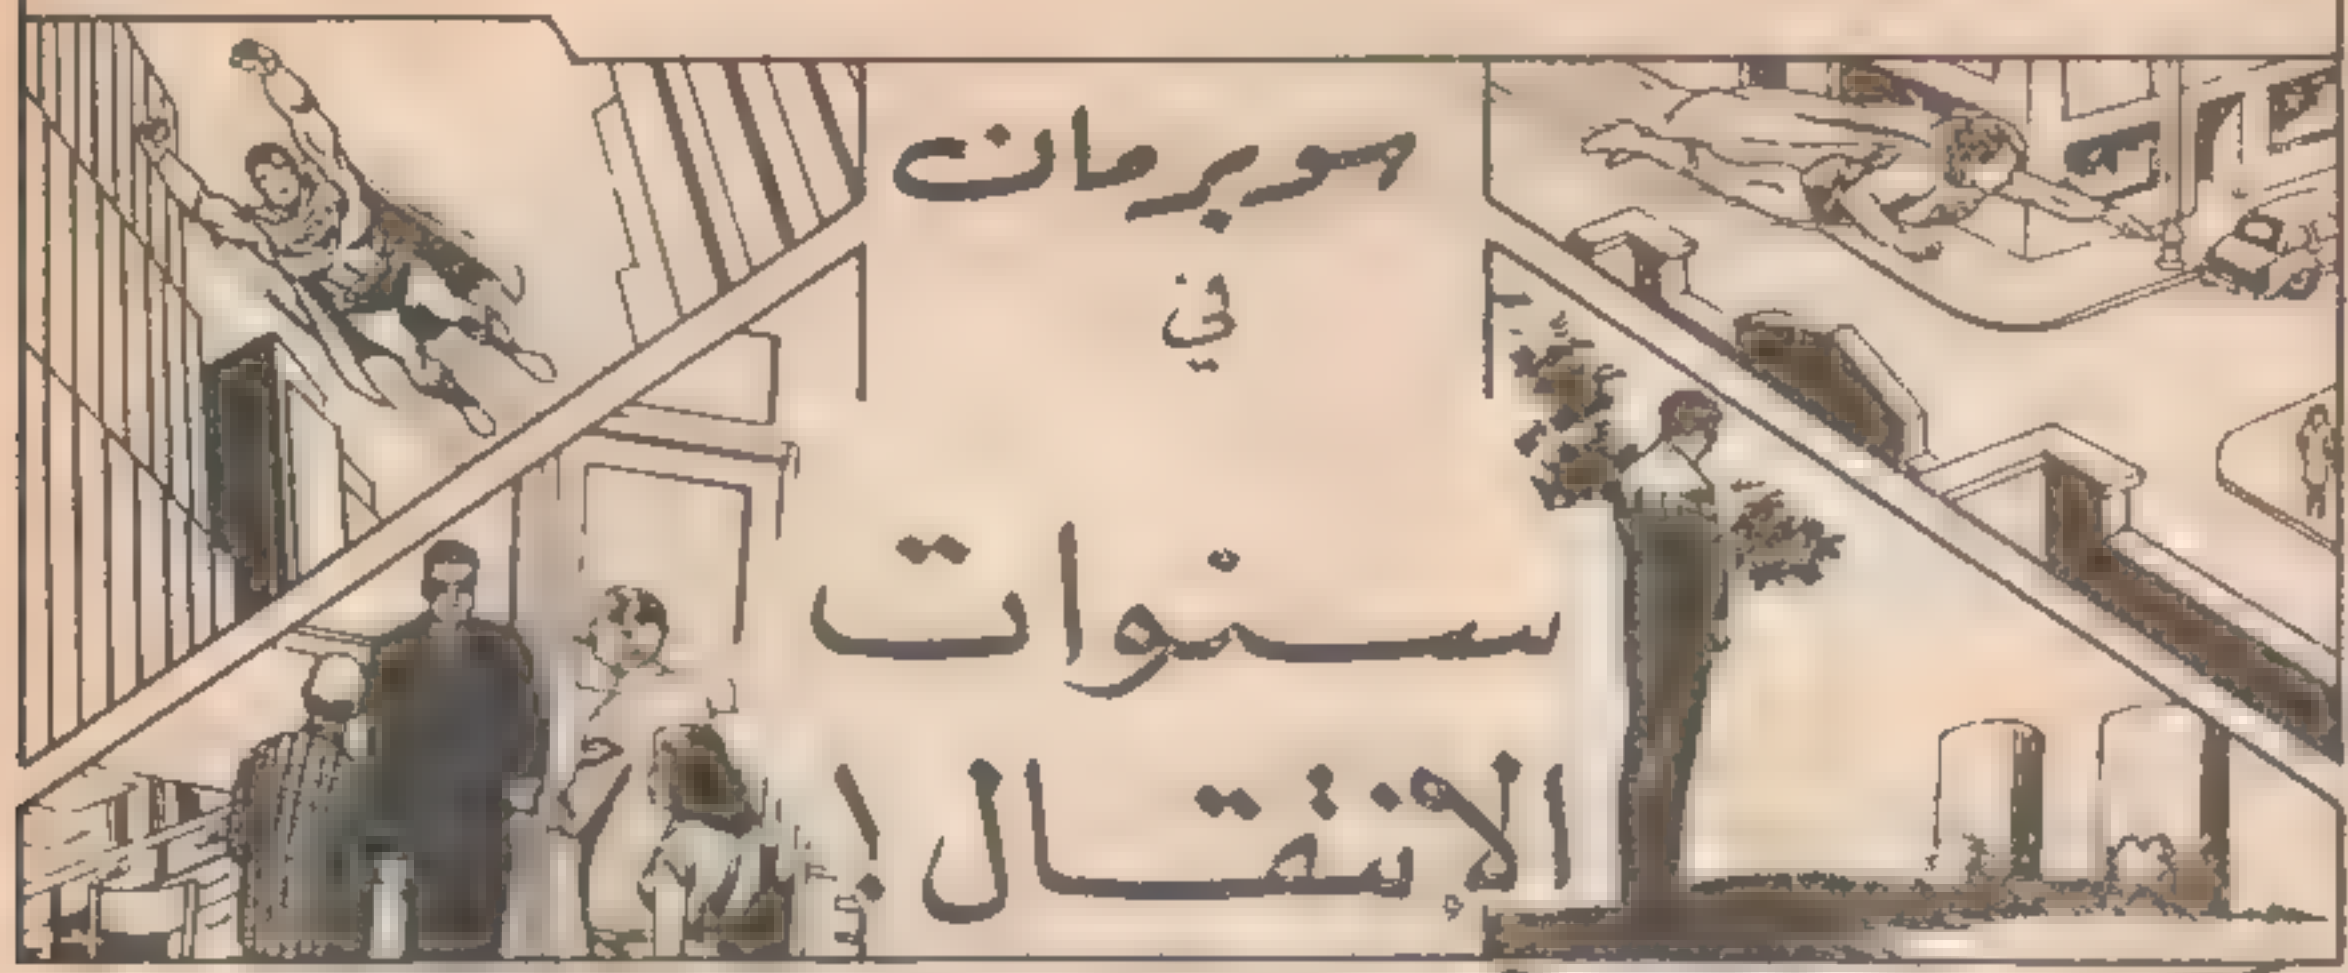 سوبرمان
في
سنوات
الإنتقال!